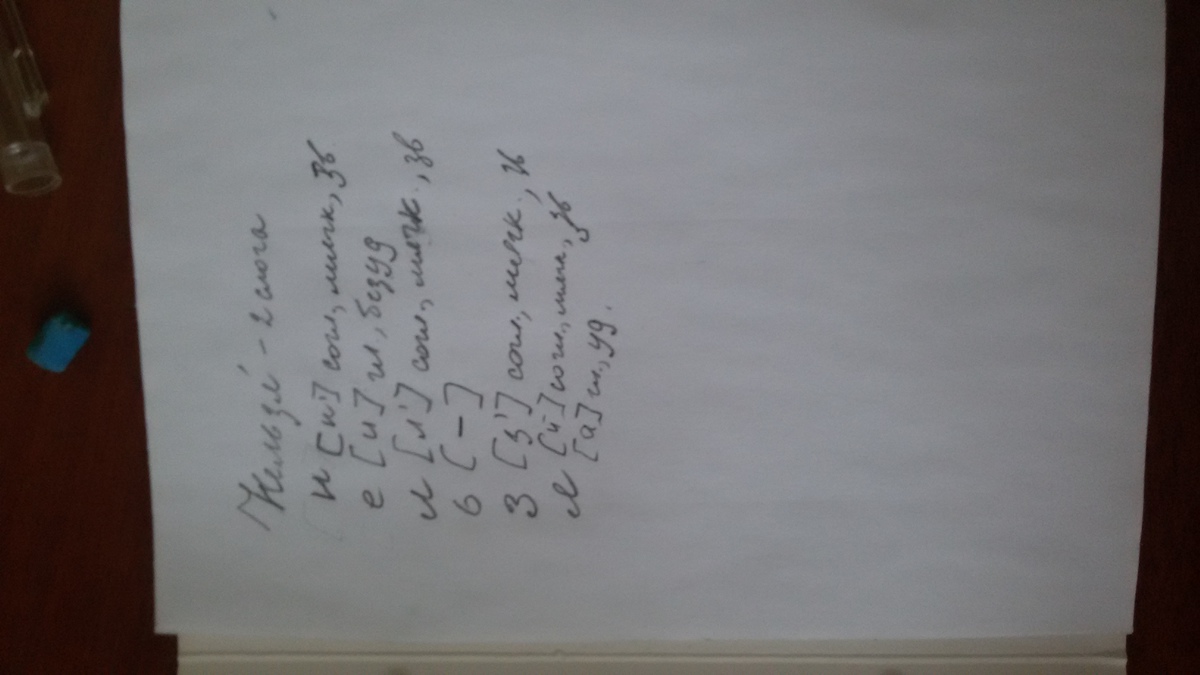 Нельзя́ - 2 слога
н [н'] согл, мягк, зв
е [и] гл, безуд
л [л'] согл., мягк., зв
ь [-]
з [з'] согл, мягк., зв
я [й] согл., мягк, зв
[а] гл., уд.